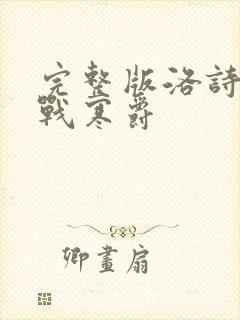 完整版洛詩
戰寒爵
卿畫扇